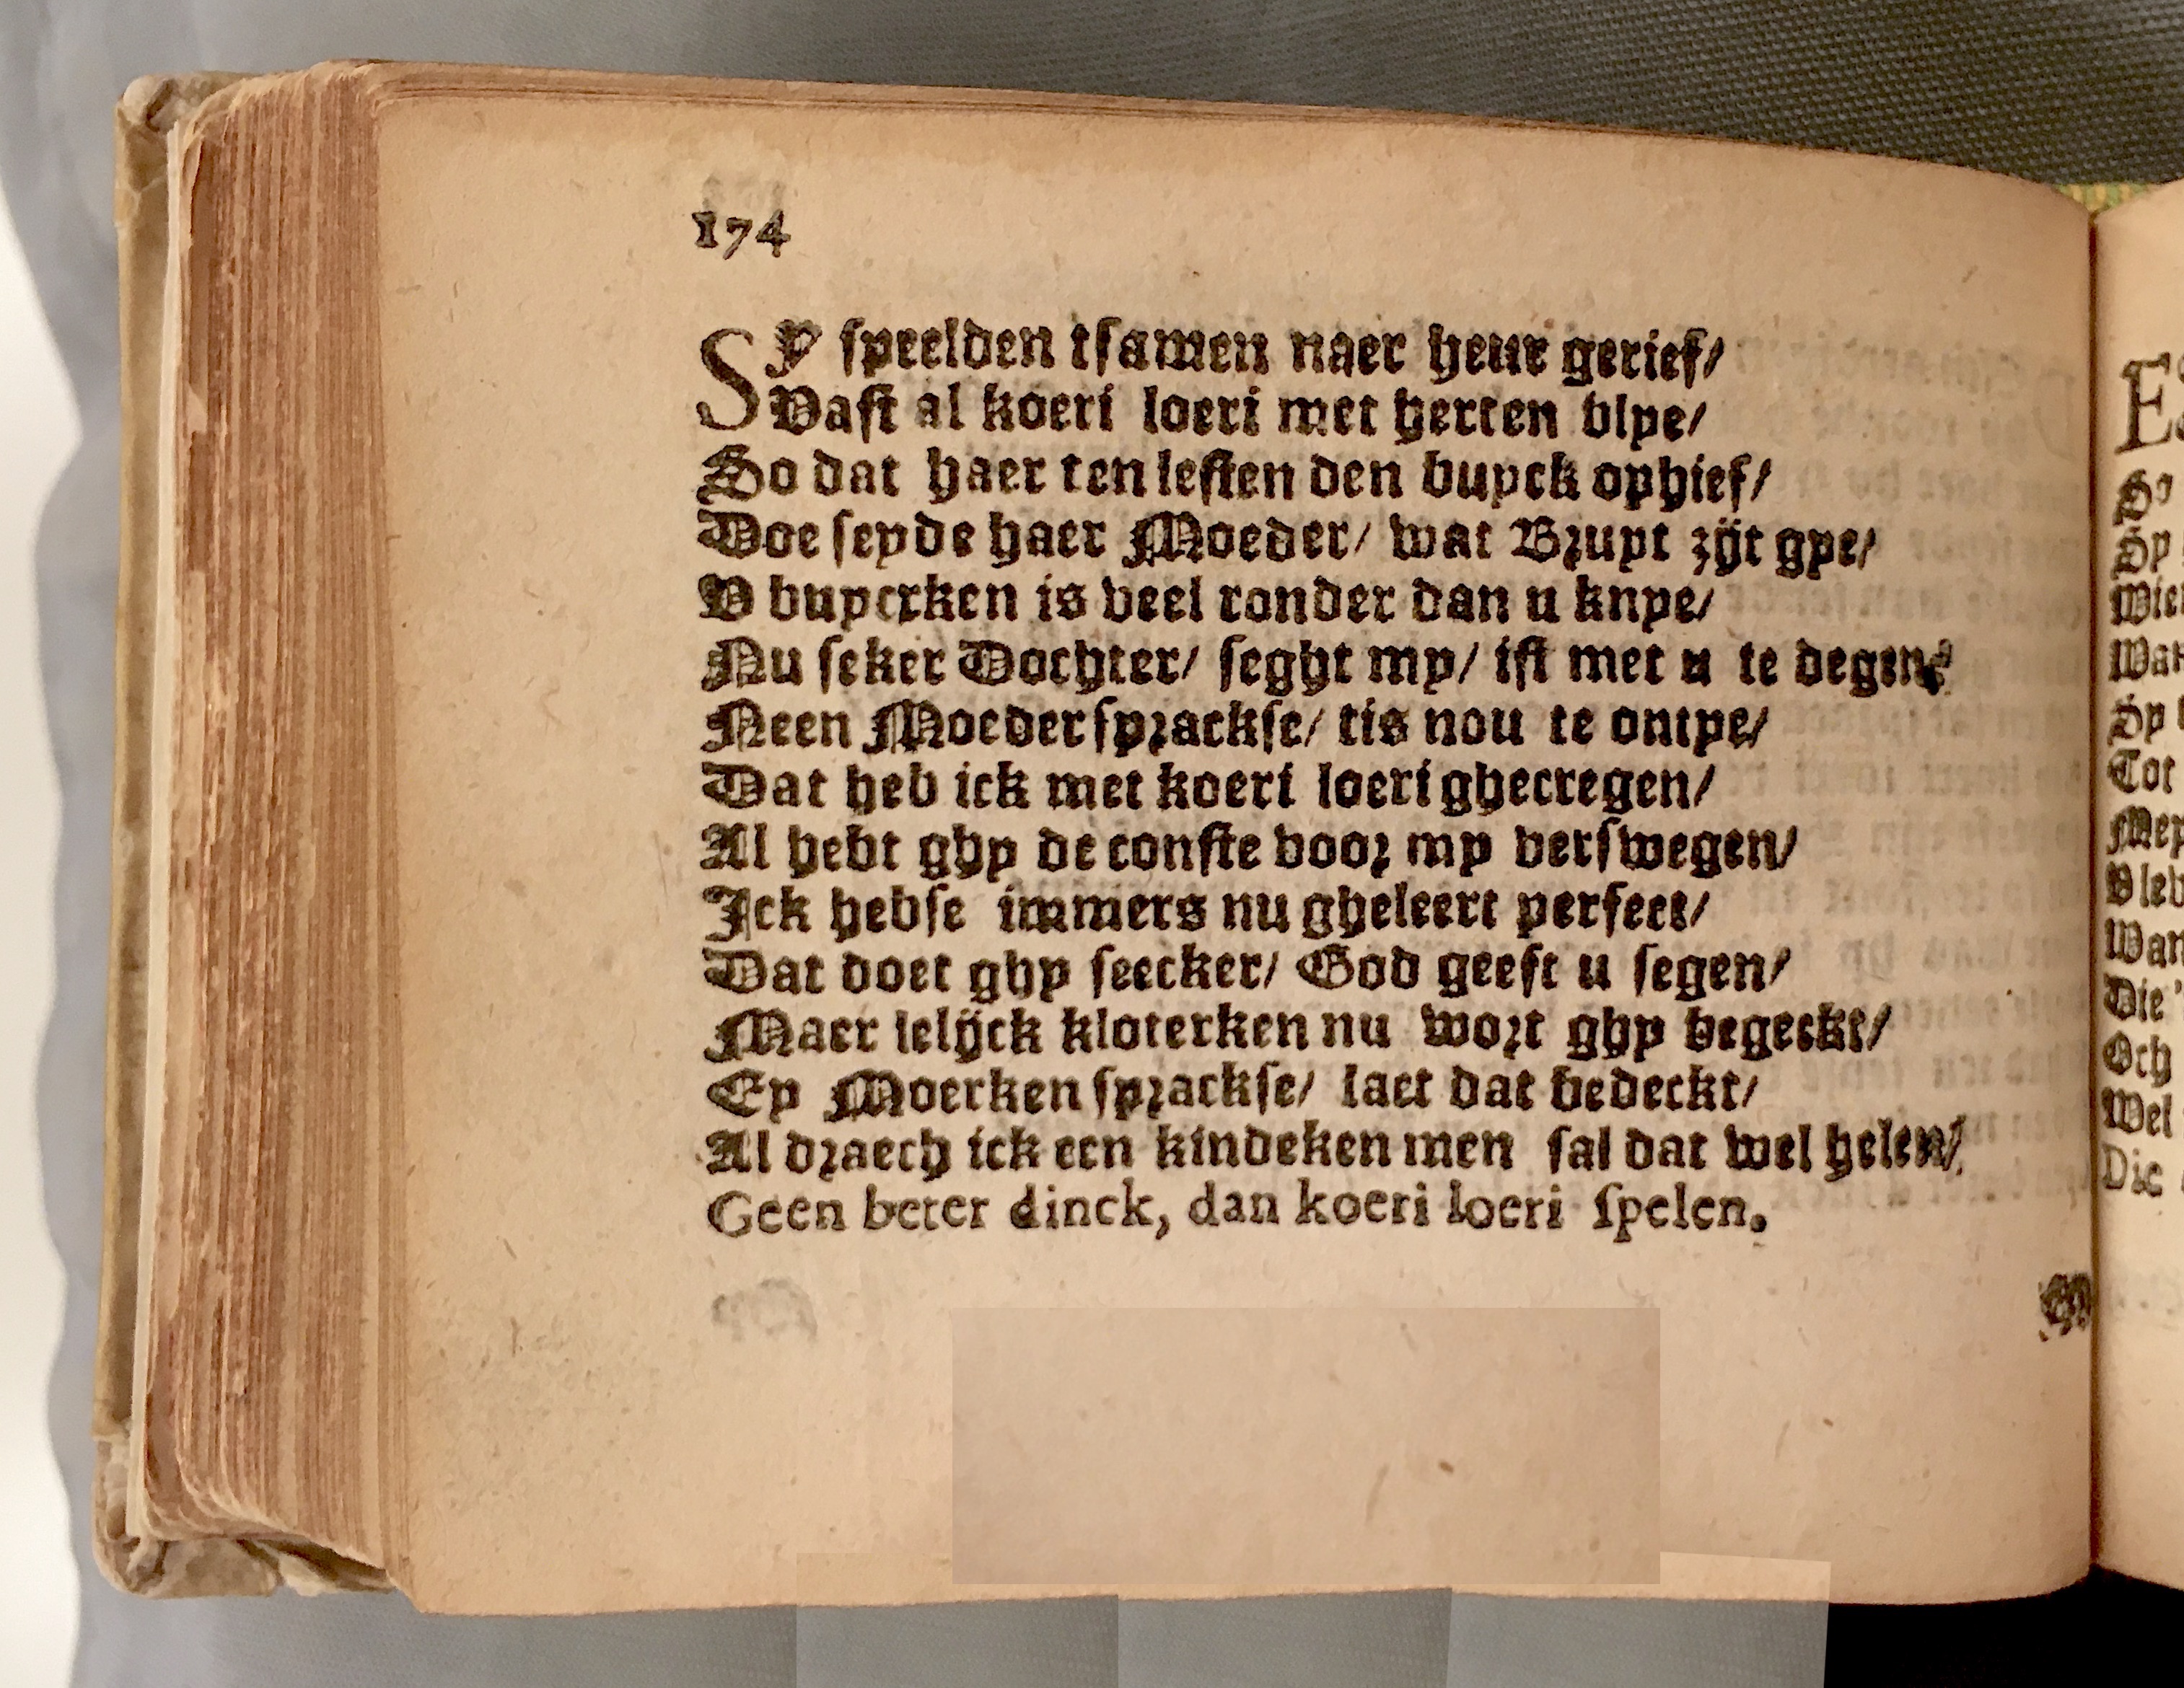 174
Sy speelden tsamen naer heur gerief/
Vast al koeri loeri met herten blye/
So dat haer ten lesten den buyck ophief/
Doe seyde haer Moeder/ wat Bruyt zijt gye/
V buycxken is veel ronder dan u knye/
Nu seker Dochter/ seght my/ ist met u te degen?
Neen Moeder sprackse/ tis nou te ontye/
Dat heb ick met koeri loeri ghecregen/
Al hebt ghy de conste voor my verswegen/
Ick hebse immers nu gheleert perfect/
Dat doet ghy seecker/ God geeft u segen/
Maer lelijck kloterken nu wort ghy begeckt/
Ey Moerken sprackse/ laet dat bedeckt/
Al draech ick een kindeken men sal dat wel helen/
Geen beter dinck, dan koeri loeri spelen.
So
Sy
Wat
Sy
Tot
Die
Och
Wel
Die